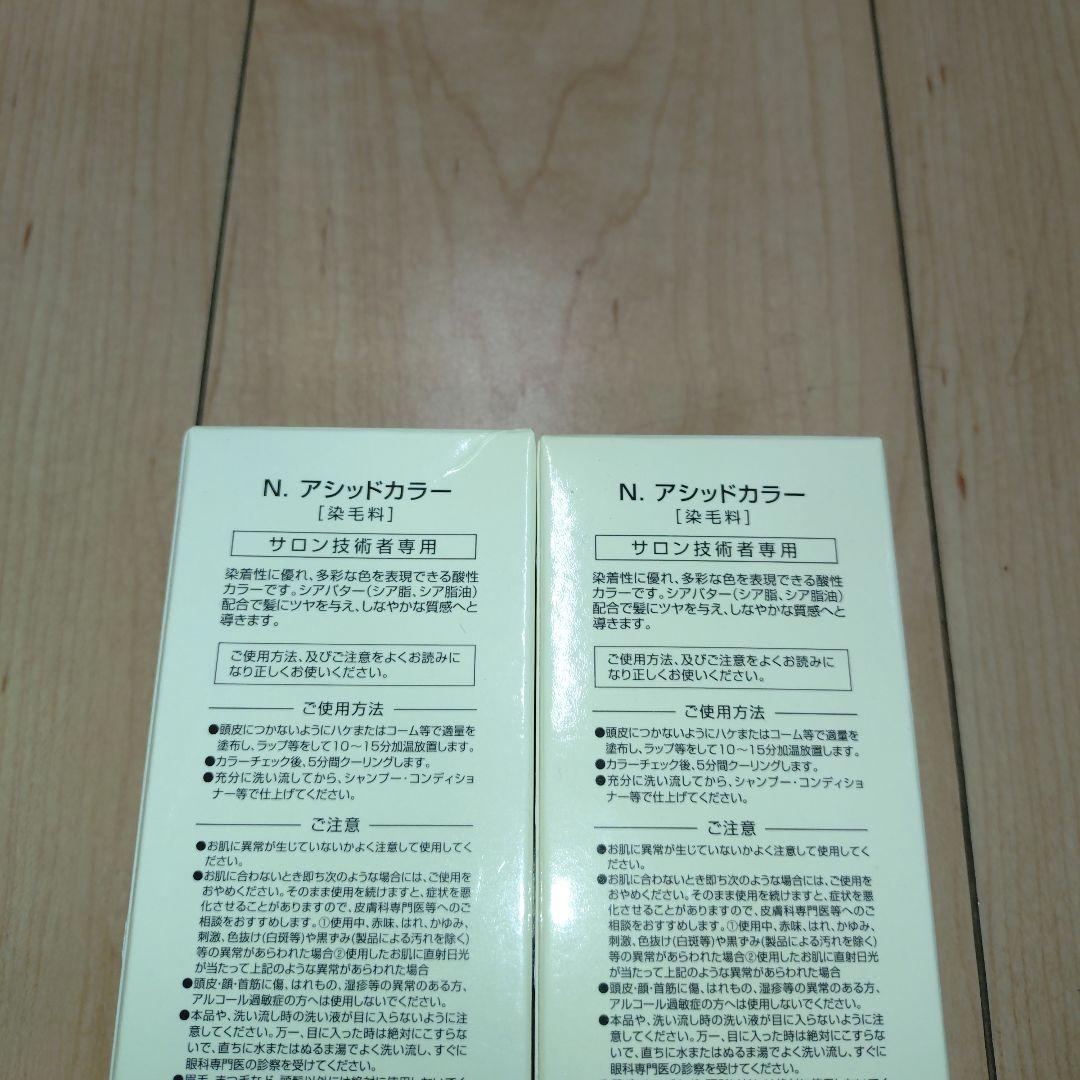 N. アシッドカラー
［染毛料］
サロン技術者専用
染着性に優れ、多彩な色を表現できる酸性
カラーです。シアバター（シア脂、シア脂油）
配合で髪にツヤを与え、しなやかな質感へと
導きます。
ご使用方法、及びご注意をよくお読みに
なり正しくお使いください。
ご使用方法
●頭皮につかないようにハケまたはコーム等で適量を
塗布し、ラップ等をして10〜15分加温放置します。
●カラーチェック後、5分間クーリングします。
●充分に洗い流してから、シャンプー・コンディショ
ナー等で仕上げてください。
ご注意
●お肌に異常が生じていないかよく注意して使用してく
ださい。
●お肌に合わないとき即ち次のような場合には、ご使用を
おやめください。そのまま使用を続けますと、症状を悪
化させることがありますので、皮膚科専門医等へのご
相談をおすすめします。①使用中、赤味、はれ、かゆみ、
刺激、色抜け(白斑等)や黒ずみ(製品による汚れを除く)
等の異常があらわれた場合②使用したお肌に直射日光
が当たって上記のような異常があらわれた場合
●頭皮・顔・首筋に傷、はれもの、湿疹等の異常のある方、
アルコール過敏症の方へは使用しないでください。
●本品や、洗い流し時の洗い液が目に入らないように注
意してください。万一、目に入った時は絶対にこすらな
いで、直ちに水またはぬるま湯でよく洗い流し、すぐに
眼科専門医の診察を受けてください。
N. アシッドカラー
［染毛料］
サロン技術者専用
染着性に優れ、多彩な色を表現できる酸性
カラーです。シアバター（シア脂、シア脂油）
配合で髪にツヤを与え、しなやかな質感へと
導きます。
ご使用方法、及びご注意をよくお読みに
なり正しくお使いください。
ご使用方法
●頭皮につかないようにハケまたはコーム等で適量を
塗布し、ラップ等をして10〜15分加温放置します。
●カラーチェック後、5分間クーリングします。
●充分に洗い流してから、シャンプー・コンディショ
ナー等で仕上げてください。
ご注意
●お肌に異常が生じていないかよく注意して使用してく
ださい。
●お肌に合わないとき即ち次のような場合には、ご使用を
おやめください。そのまま使用を続けますと、症状を悪
化させることがありますので、皮膚科専門医等へのご
相談をおすすめします。①使用中、赤味、はれ、かゆみ、
刺激、色抜け(白斑等)や黒ずみ(製品による汚れを除く)
等の異常があらわれた場合②使用したお肌に直射日光
が当たって上記のような異常があらわれた場合
●頭皮・顔・首筋に傷、はれもの、湿疹等の異常のある方、
アルコール過敏症の方へは使用しないでください。
●本品や、洗い流し時の洗い液が目に入らないように注
意してください。万一、目に入った時は絶対にこすらな
いで、直ちに水またはぬるま湯でよく洗い流し、すぐに
眼科専門医の診察を受けてください。